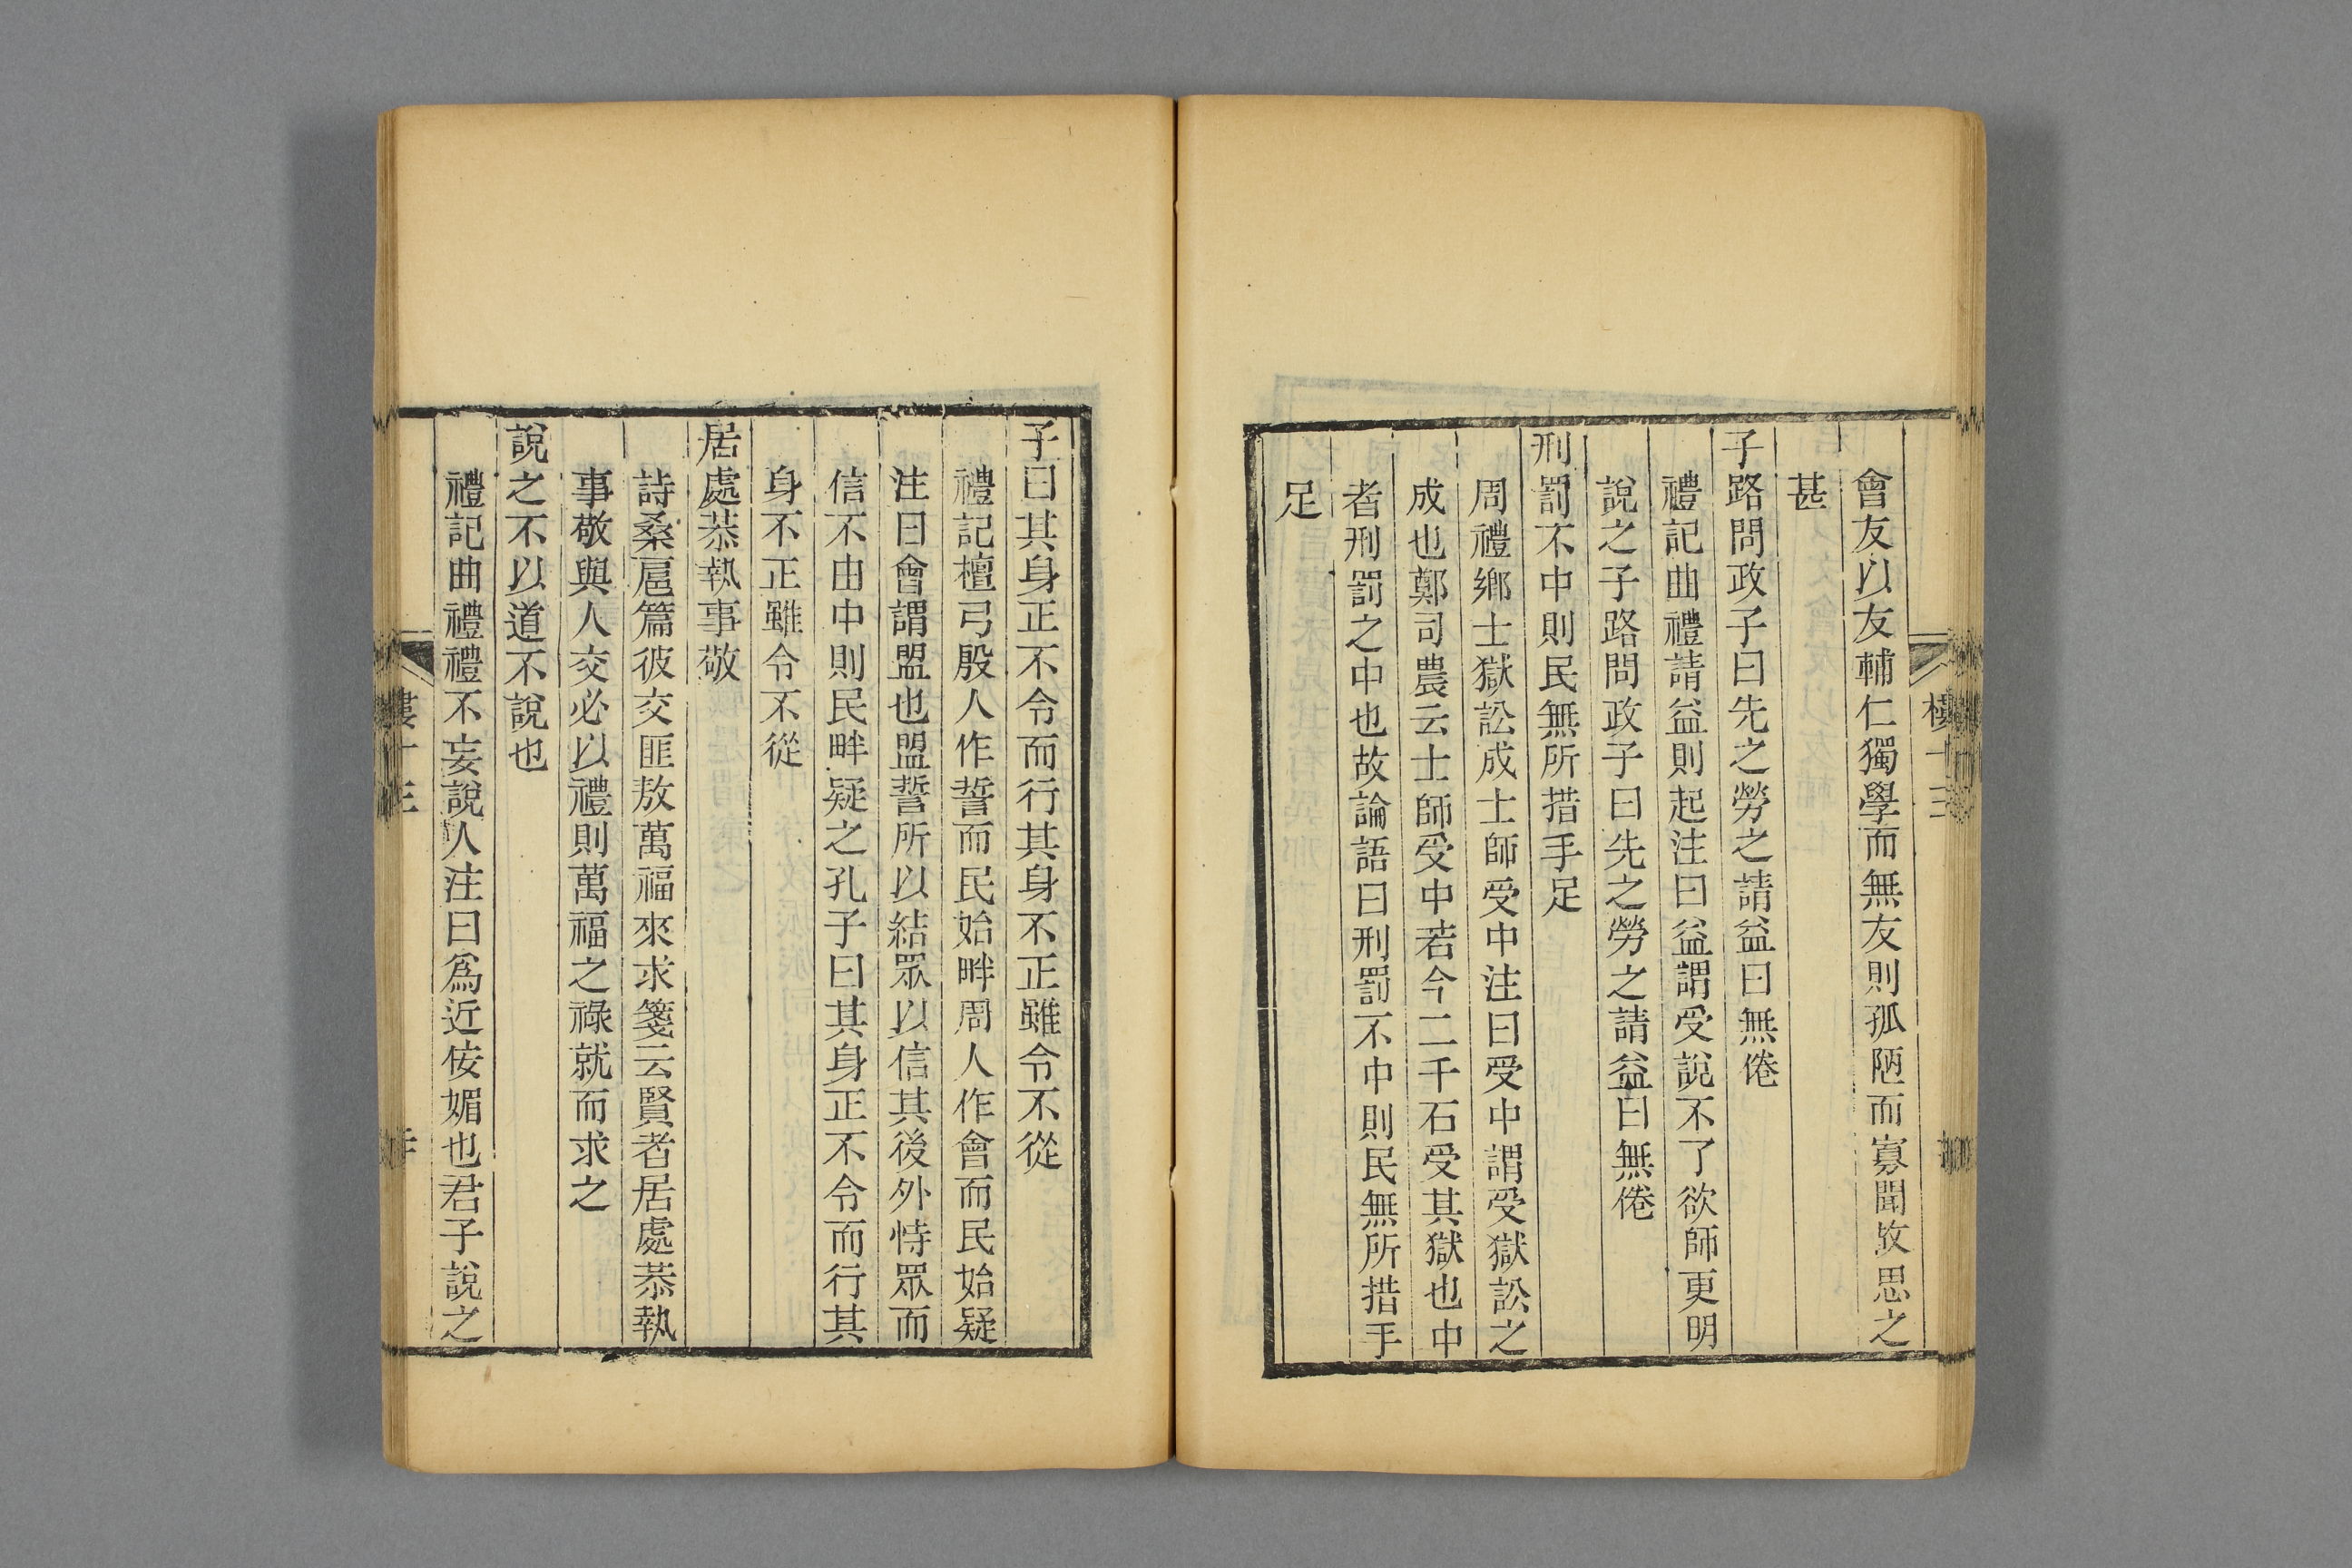 會友以友輔仁獨學而無友則孤陋而寡聞攷思之
甚
子路問政子曰先之勞之請益曰無倦
禮記曲禮請益則起注曰益謂受說不了欲師更明
說之子路問政子曰先之勞之請益曰無倦
刑罰不中則民無所措手足
周禮鄉士獄訟成士師受中注曰受中謂受獄訟之
成也鄭司農云士師受中若今二千石受其獄也中
者刑罰之中也故論語曰刑罰不中則民無所措手
足
子曰其身正不令而行其身不正雖令不從
禮記檀弓殷人作誓而民始畔周人作會而民始疑
注曰會謂盟也盟誓所以結眾以信其後外恃眾而
信不由中則民畔疑之孔子曰其身正不令而行其
身不正雖令不從
居處恭執事敬
詩桑扈篇彼交匪敖萬福來求箋云賢者居處恭執
事敬與人交必以禮則萬福之祿就而求之
說之不以道不說也
禮記曲禮禮不妄說人注曰爲近佞媚也君子說之